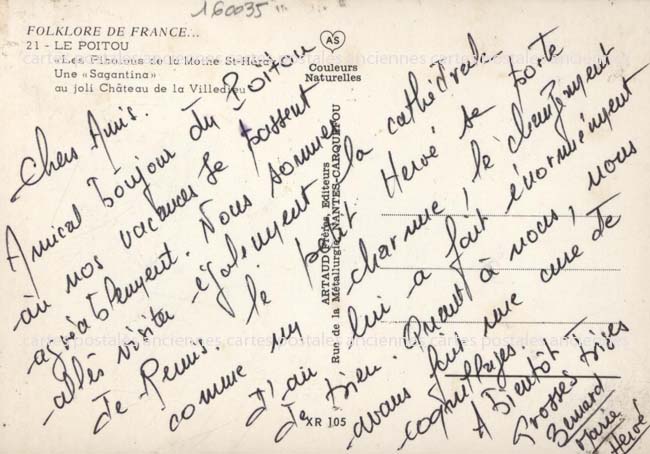 160035
FOLKLORE DE FRANCE...
21 - LE POITOU
«Les Pibolous de la Mothe St-Héray»
Une «Sagantina»
au joli Château de la Villedieu
AS
Couleurs
Naturelles
ARTAUD Frères, Editeurs
Rue de la Métallurgie, NANTES-CARQUEFOU
XR 105
Chers Amis.
Amical bonjour du Poitou
où nos vacances se passent
agréablement. Nous sommes
allés visiter également la cathédrale
de Reims. Le petit Hervé se porte
comme un charme, le changement
d'air lui a fait énormément
de bien. Quant à nous, nous
avons fait une cure de
coquillages.
A Bientôt
Grosses bises
Bernard
Marie
Hervé
cartes postales anciennes cartes postales anciennes cartes postales anciennes